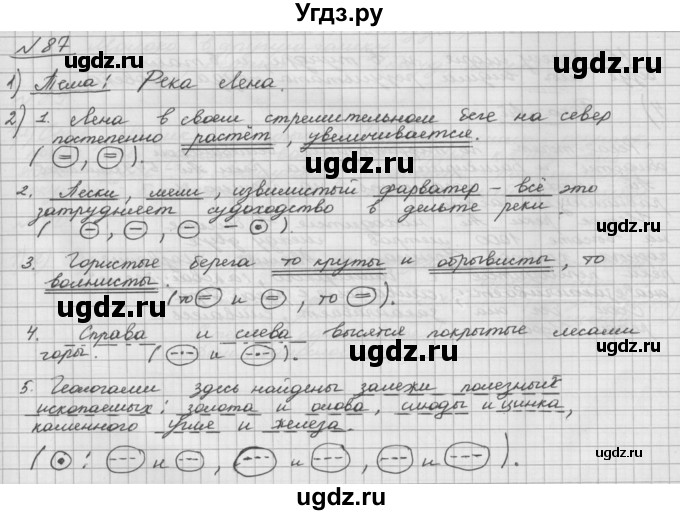 Угдз.ру
№87
1) Тема: Река Лена.
2) 1. Лена в своем стремительном беге на север
постепенно растёт, увеличивается.
( = , = ).
2. Пески, мели, извилистый фарватер – всё это
затрудняет судоходство в дельте реки.
( – , – , – – • ).
3. Гористые берега то круты и обрывисты, то
волнисты. (то = и = , то = ).
4. Справа и слева высятся покрытые лесами
горы. ( -·- и -·- ).
5. Геологами здесь найдены залежи полезных
ископаемых: золота и олова, слюды и цинка,
каменного угля и железа.
( • : --- и --- , --- и --- , --- и --- ).
ugdz.ru
ugdz.ru
ugdz.ru
ugdz.ru
ugdz.ru
ugdz.ru
ugdz.ru
ugdz.ru
ugdz.ru
ugdz.ru
ugdz.ru
ugdz.ru
ugdz.ru
ugdz.ru